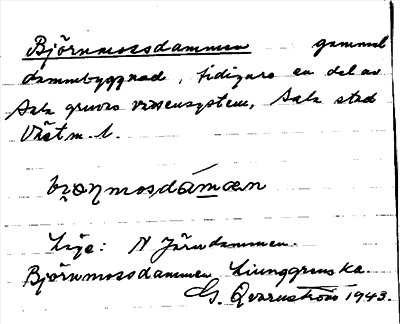 Björnmossdammen gammal
dammbyggnad, tidigare en del av
Sala gruvas vattensystem, Sala stad
Västm. l.
Läge: N Järndammen.
Björnmossdammen Ljunggrenska.
G. Qvarnström 1943.